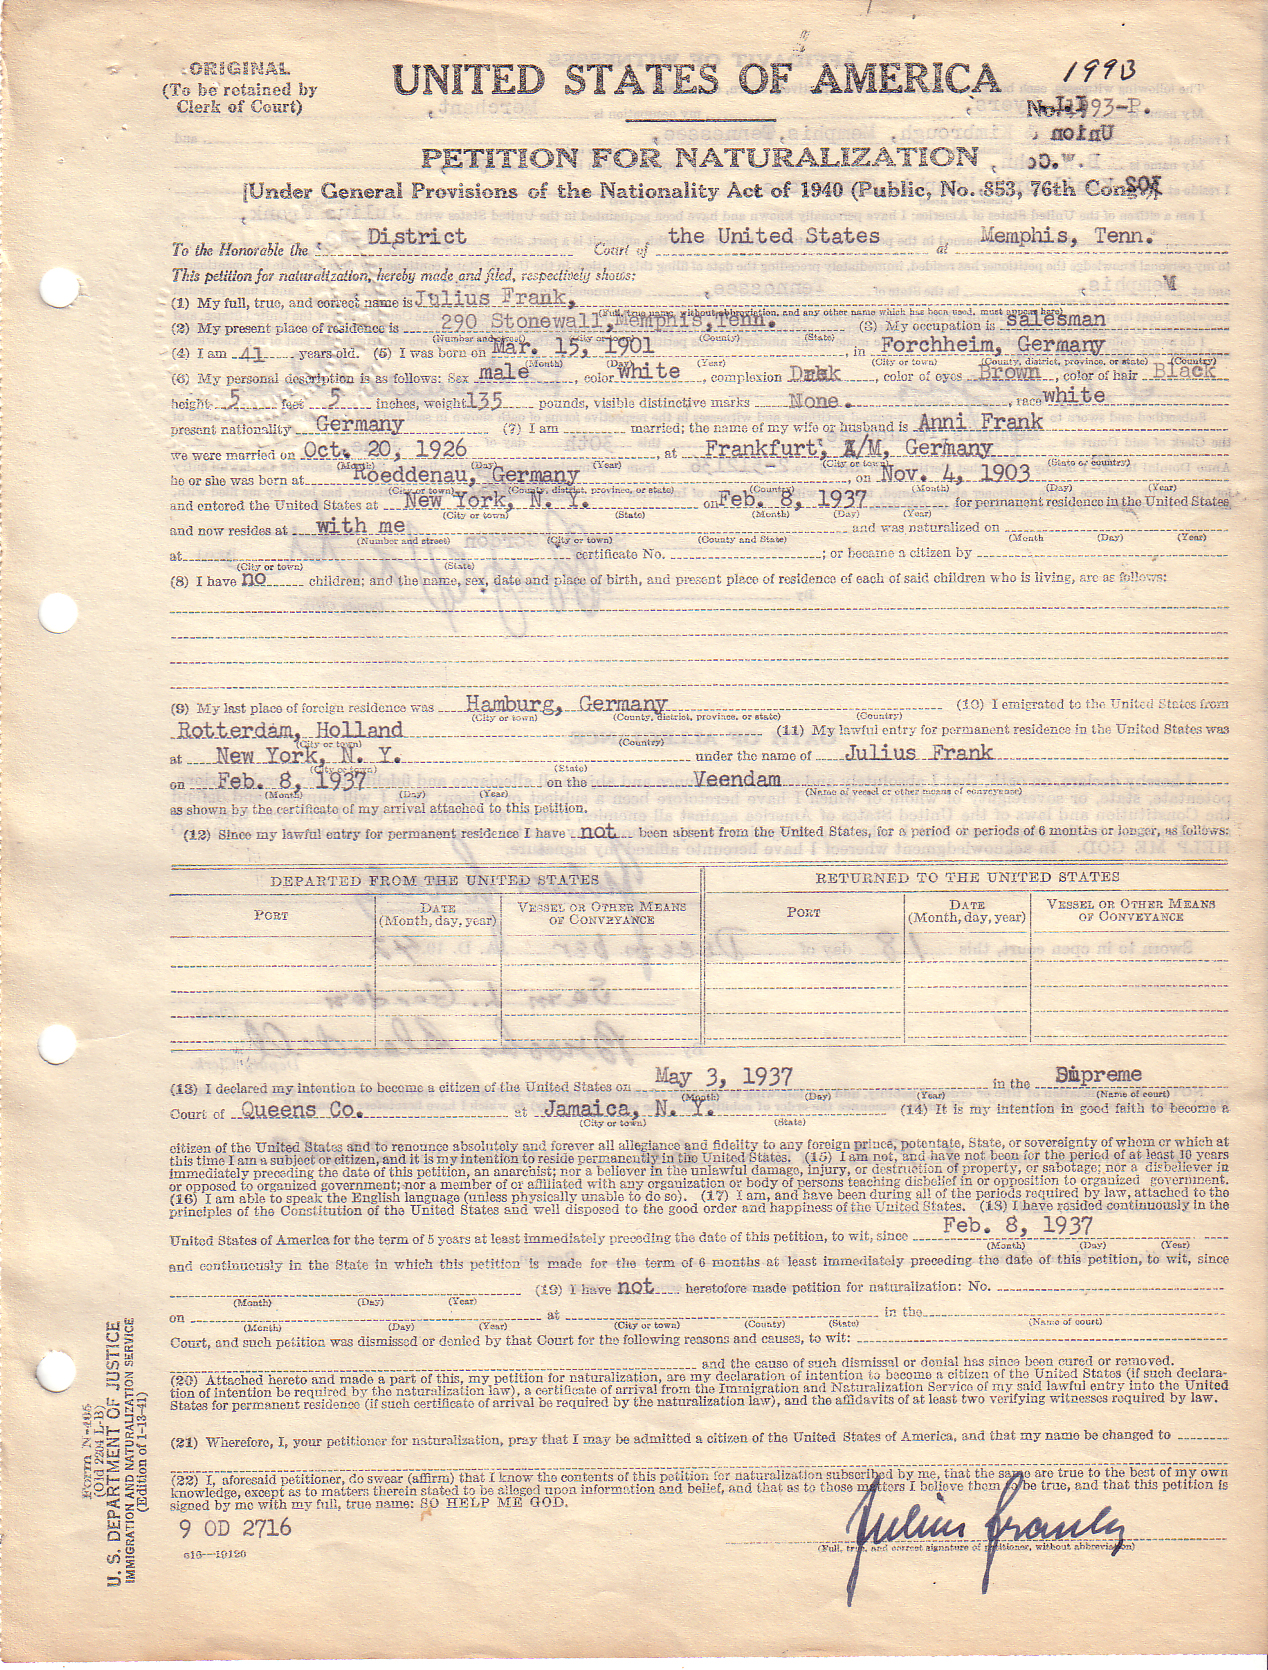 ORIGINAL
(To be retained by
Clerk of Court)
UNITED STATES OF AMERICA
1993
No. 1993-P.
PETITION FOR NATURALIZATION
[Under General Provisions of the Nationality Act of 1940 (Public, No. 853, 76th Cong.)]
To the Honorable the District Court of the United States at Memphis, Tenn.
This petition for naturalization, hereby made and filed, respectively shows:
(1) My full, true, and correct name is Julius Frank,
(Full, true name, without abbreviation, and any other name which has been used, must appear here)
(2) My present place of residence is 290 Stonewall, Memphis, Tenn. (3) My occupation is salesman
(Number and street) (City or town) (County) (State)
(4) I am 41 years old. (5) I was born on Mar. 15, 1901 in Forchheim, Germany
(Month) (Day) (Year) (City or town) (County, district, province, or state) (Country)
(6) My personal description is as follows: Sex male, color white, complexion Dark, color of eyes Brown, color of hair Black
height 5 feet 5 inches, weight 135 pounds, visible distinctive marks None., race white
present nationality Germany (7) I am married; the name of my wife or husband is Anni Frank
we were married on Oct. 20, 1926, at Frankfurt, A/M, Germany
(Month) (Day) (Year) (City or town) (State or country)
he or she was born at Roeddenau, Germany, on Nov. 4, 1903
(City or town) (County, district, province, or state) (Country) (Month) (Day) (Year)
and entered the United States at New York, N. Y. on Feb. 8, 1937 for permanent residence in the United States
(City or town) (State) (Month) (Day) (Year)
and now resides at with me and was naturalized on
(Number and street) (City or town) (County and State) (Month (Day) (Year)
at certificate No. ; or became a citizen by
(City or town) (State)
(8) I have no children; and the name, sex, date and place of birth, and present place of residence of each of said children who is living, are as follows:
(9) My last place of foreign residence was Hamburg, Germany (10) I emigrated to the United States from
(City or town) (County, district, province, or state) (Country)
Rotterdam, Holland (11) My lawful entry for permanent residence in the United States was
(City or town) (Country)
at New York, N. Y. under the name of Julius Frank
(City or town) (State)
on Feb. 8, 1937 on the Veendam
(Month) (Day) (Year) (Name of vessel or other means of conveyance)
as shown by the certificate of my arrival attached to this petition.
(12) Since my lawful entry for permanent residence I have not been absent from the United States, for a period or periods of 6 months or longer, as follows:
DEPARTED FROM THE UNITED STATES RETURNED TO THE UNITED STATES
PORT DATE (Month, day, year) VESSEL OR OTHER MEANS OF CONVEYANCE PORT DATE (Month, day, year) VESSEL OR OTHER MEANS OF CONVEYANCE
(13) I declared my intention to become a citizen of the United States on May 3, 1937 in the Supreme
(Month) (Day) (Year) (Name of court)
Court of Queens Co. at Jamaica, N. Y. (14) It is my intention in good faith to become a
(City or town) (State)
citizen of the United States and to renounce absolutely and forever all allegiance and fidelity to any foreign prince, potentate, State, or sovereignty of whom or which at
this time I am a subject or citizen, and it is my intention to reside permanently in the United States. (15) I am not, and have not been for the period of at least 10 years
immediately preceding the date of this petition, an anarchist; nor a believer in the unlawful damage, injury, or destruction of property, or sabotage; nor a disbeliever in
or opposed to organized government; nor a member of or affiliated with any organization or body of persons teaching disbelief in or opposition to organized government.
(16) I am able to speak the English language (unless physically unable to do so). (17) I am, and have been during all of the periods required by law, attached to the
principles of the Constitution of the United States and well disposed to the good order and happiness of the United States. (18) I have resided continuously in the
United States of America for the term of 5 years at least immediately preceding the date of this petition, to wit, since Feb. 8, 1937
(Month) (Day) (Year)
and continuously in the State in which this petition is made for the term of 6 months at least immediately preceding the date of this petition, to wit, since
(19) I have not heretofore made petition for naturalization: No.
(Month) (Day) (Year)
on at in the
(Month) (Day) (Year) (City or town) (County) (State) (Name of court)
Court, and such petition was dismissed or denied by that Court for the following reasons and causes, to wit:
and the cause of such dismissal or denial has since been cured or removed.
(20) Attached hereto and made a part of this, my petition for naturalization, are my declaration of intention to become a citizen of the United States (if such declara-
tion of intention be required by the naturalization law), a certificate of arrival from the Immigration and Naturalization Service of my said lawful entry into the United
States for permanent residence (if such certificate of arrival be required by the naturalization law), and the affidavits of at least two verifying witnesses required by law.
(21) Wherefore, I, your petitioner for naturalization, pray that I may be admitted a citizen of the United States of America, and that my name be changed to
(22) I, aforesaid petitioner, do swear (affirm) that I know the contents of this petition for naturalization subscribed by me, that the same are true to the best of my own
knowledge, except as to matters therein stated to be alleged upon information and belief, and that as to those matters I believe them to be true, and that this petition is
signed by me with my full, true name: SO HELP ME GOD.
9 OD 2716
Julius Frank
(Full, true, and correct signature of petitioner, without abbreviation)
c16—19120
Form N-405
(Old 2204 L-B)
U. S. DEPARTMENT OF JUSTICE
IMMIGRATION AND NATURALIZATION SERVICE
(Edition of 1-13-41)